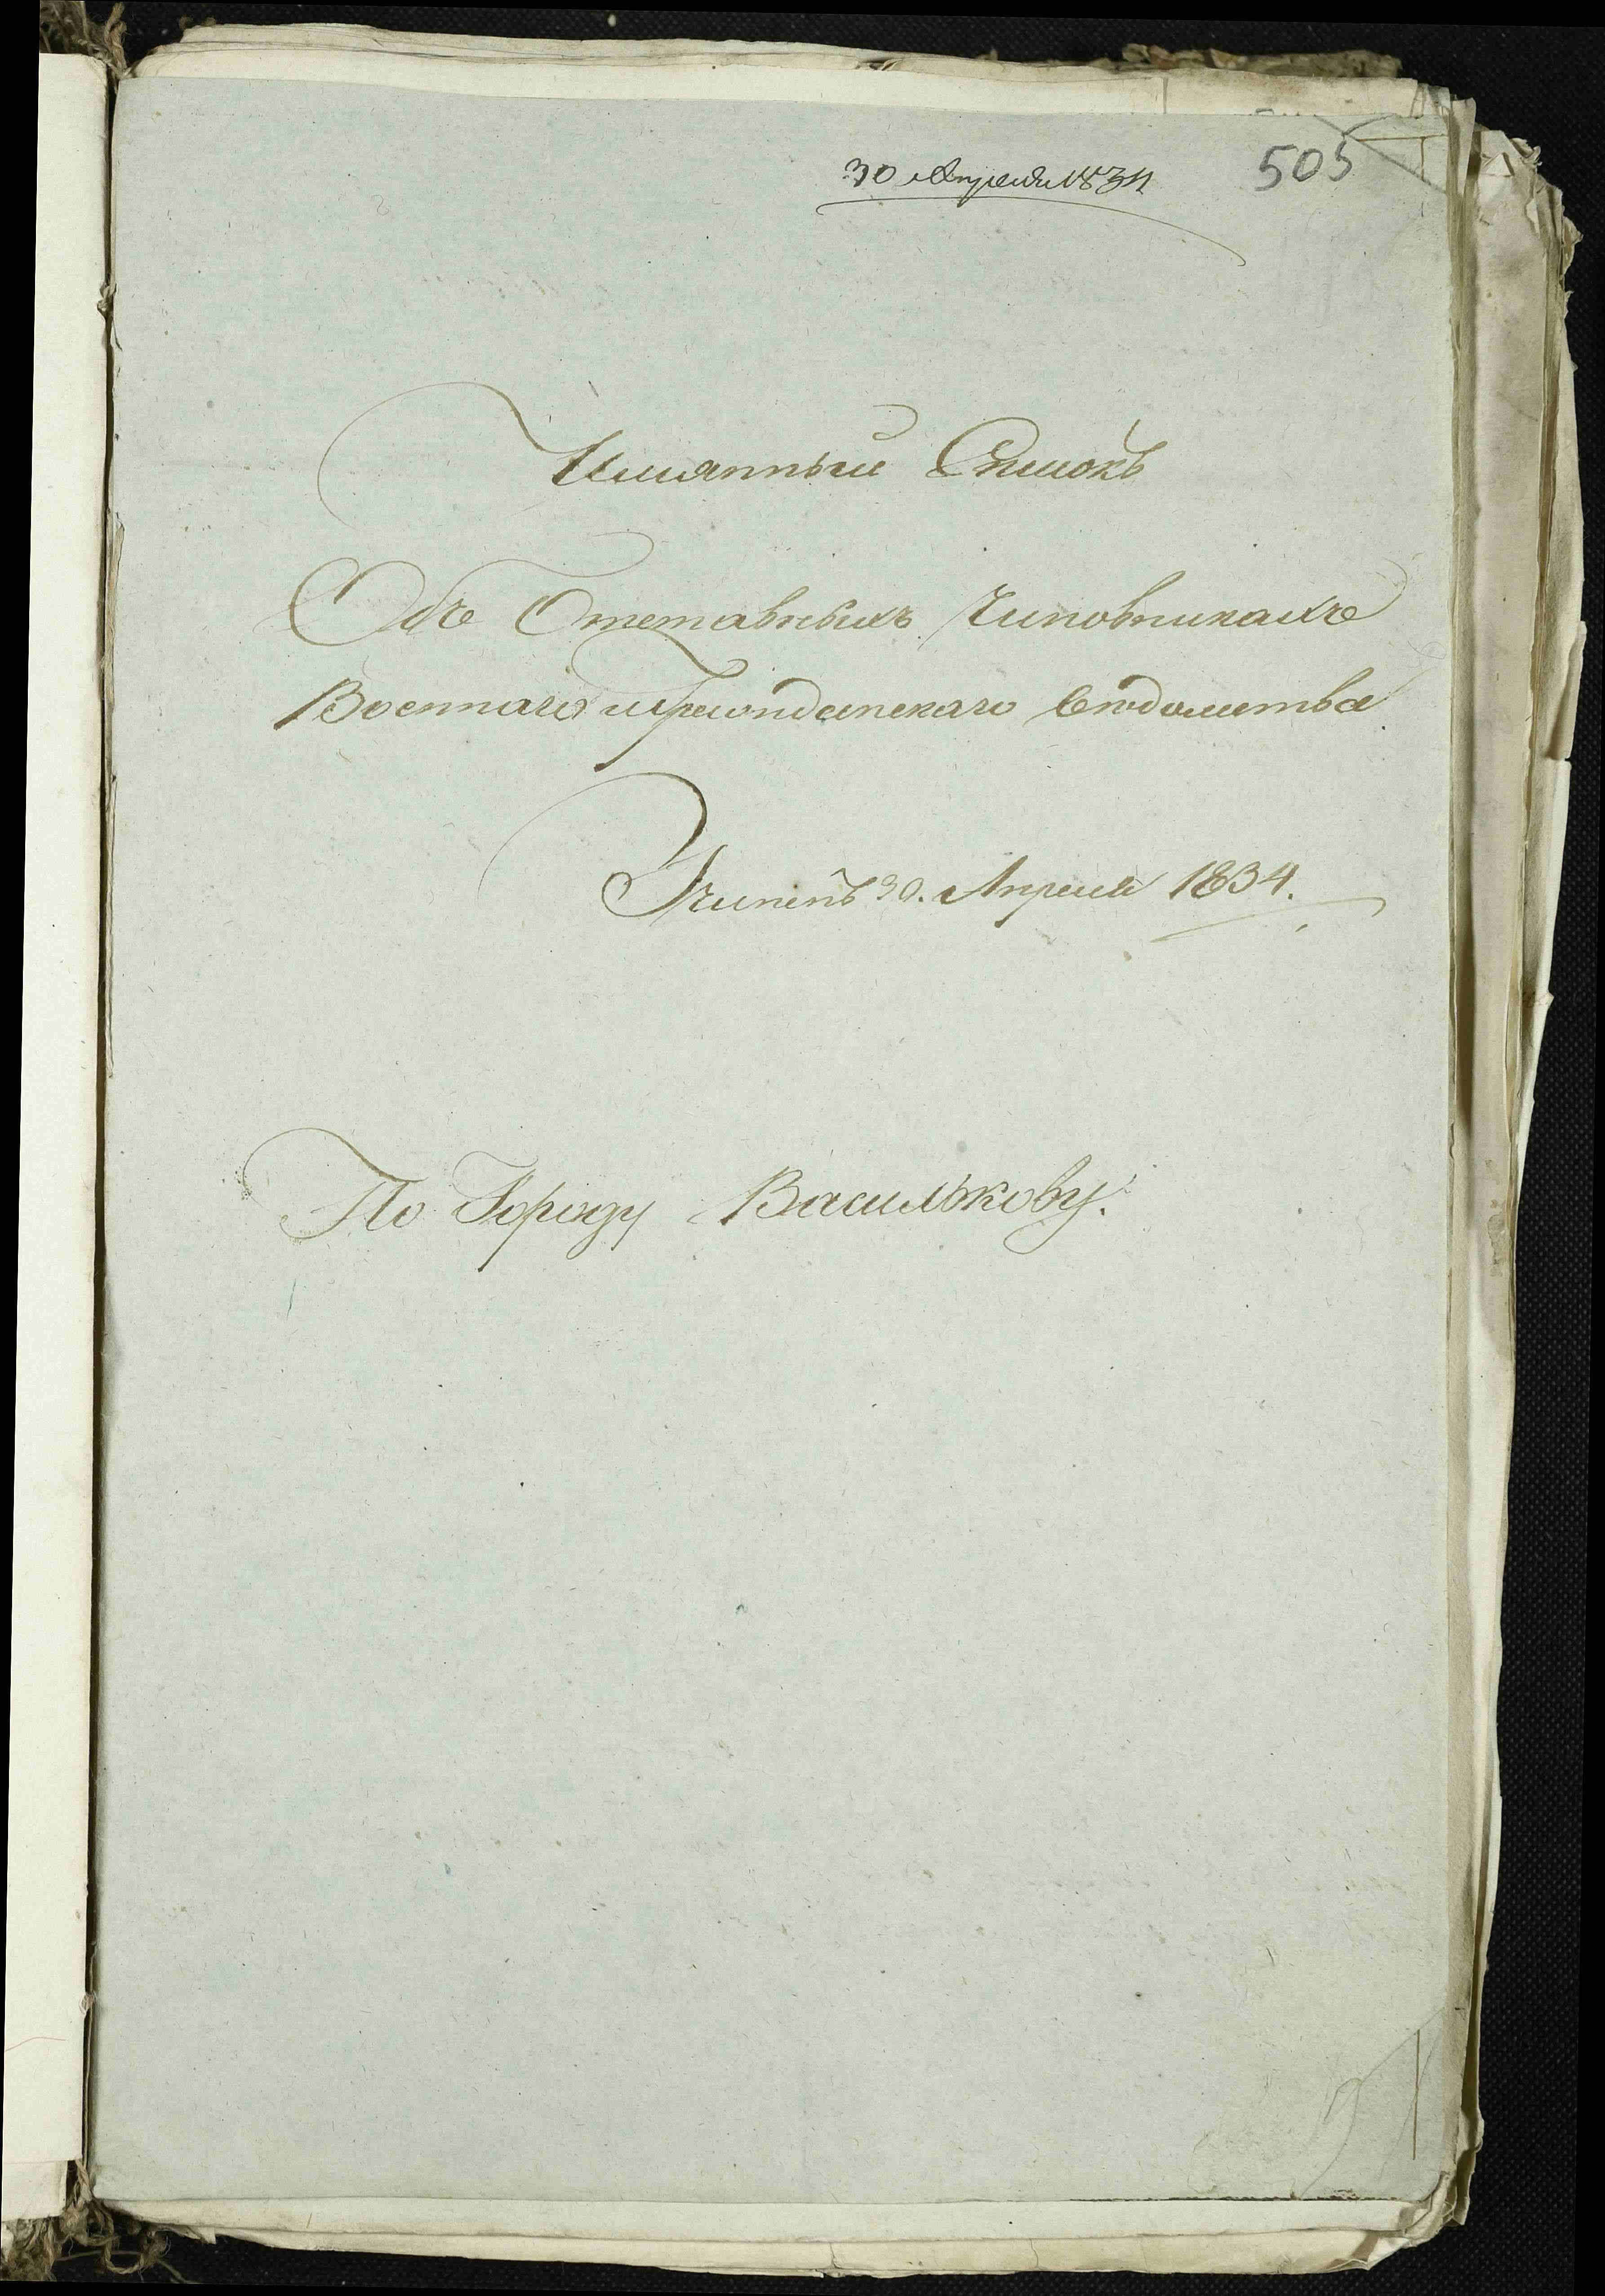 30 Апреля 1834
505
Имянный Списокъ
Объ Отставныхъ Чиновникахъ
Военнаго и Гражданскаго Вѣдомства
Учиненъ 30. Апреля 1834.
По Городу Василькову.